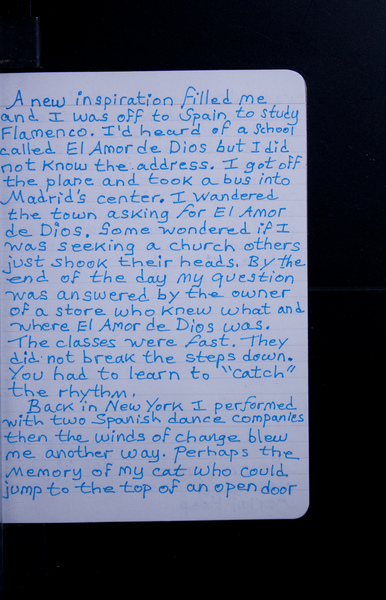 A new inspiration filled me
and I was off to Spain to study
Flamenco. I'd heard of a school
called El Amor de Dios but I did
not know the address. I got off
the plane and took a bus into
Madrid's center. I wandered
the town asking for El Amor
de Dios. Some wondered if I
was seeking a church others
just shook their heads. By the
end of the day my question
was answered by the owner
of a store who knew what and
where El Amor de Dios was.
The classes were fast. They
did not break the steps down.
You had to learn to "catch"
the rhythm.
Back in New York I performed
with two Spanish dance companies
then the winds of change blew
me another way. Perhaps the
memory of my cat who could
jump to the top of an open door